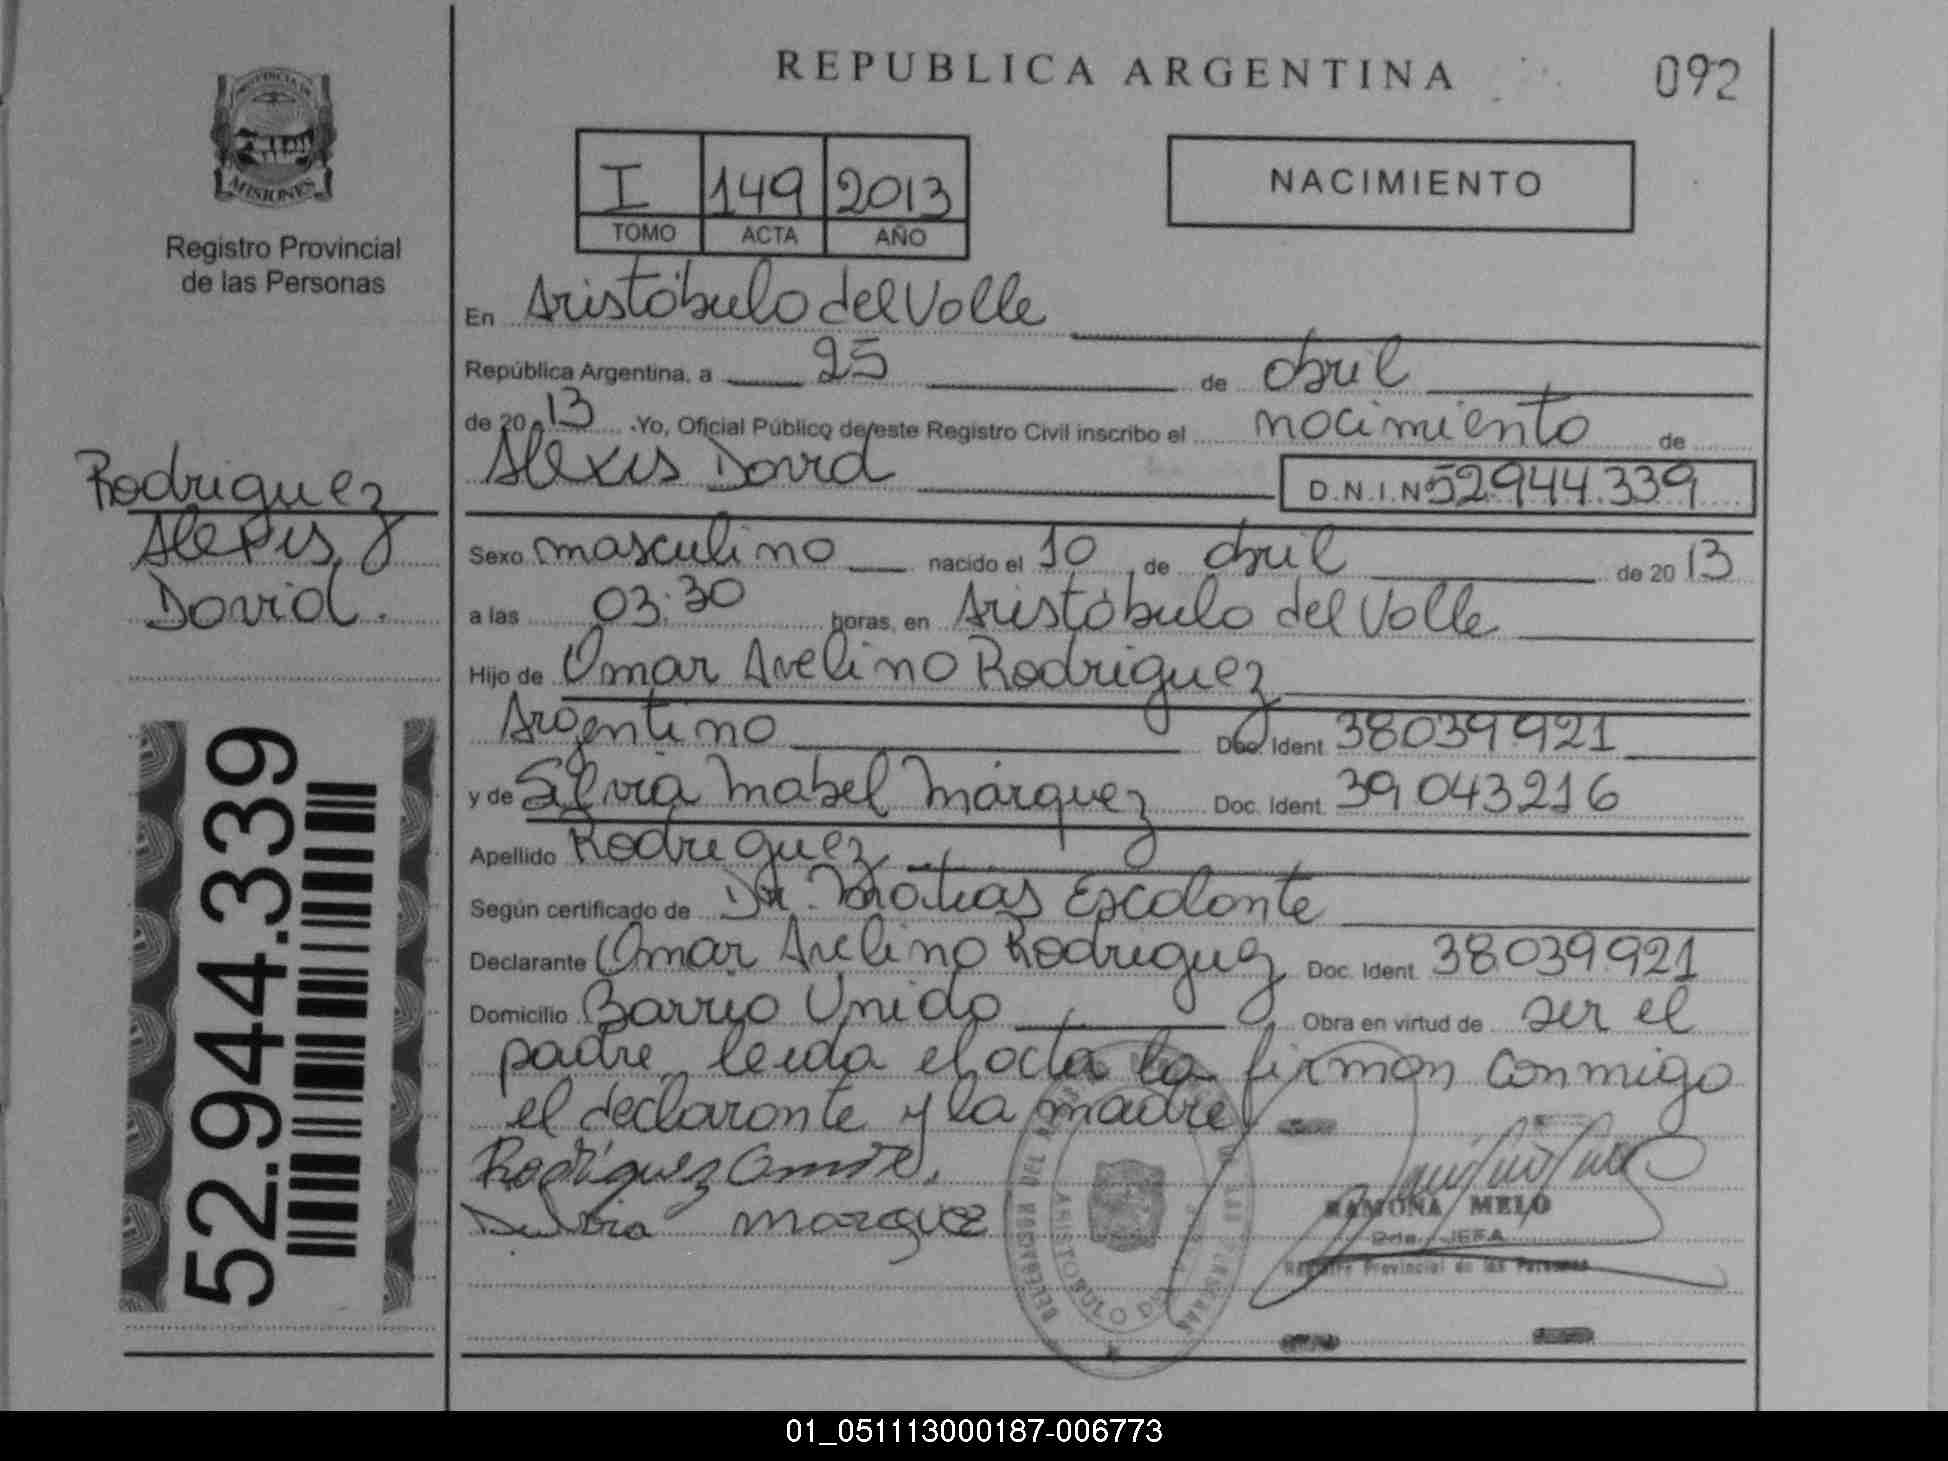 REPUBLICA ARGENTINA
092
PROVINCIA DE
MISIONES
Registro Provincial
de las Personas
I 149 2013
TOMO ACTA AÑO
NACIMIENTO
En Aristóbulo del Valle
República Argentina, a 25 de abril
de 2013 .Yo, Oficial Público de este Registro Civil inscribo el nacimiento de
Alexis David D.N.I.Nº 52.944.339
Rodriguez
Alexis
David.
Sexo masculino nacido el 10 de abril de 2013
a las 03:30 horas, en Aristóbulo del Valle
Hijo de Omar Avelino Rodriguez
Argentino Doc. Ident. 38.039.921
y de Silvia Mabel Márquez Doc. Ident. 39.043.216
Apellido Rodriguez
Según certificado de Dr. Matías Escalante
Declarante Omar Avelino Rodriguez Doc. Ident. 38.039.921
Domicilio Barrio Unido Obra en virtud de ser el
padre, leida el acta la firman conmigo
el declarante y la madre
Rodriguez
marquez
RAMONA MELO
JEFA
Registro Provincial de las Personas
52.944.339
01_051113000187-006773